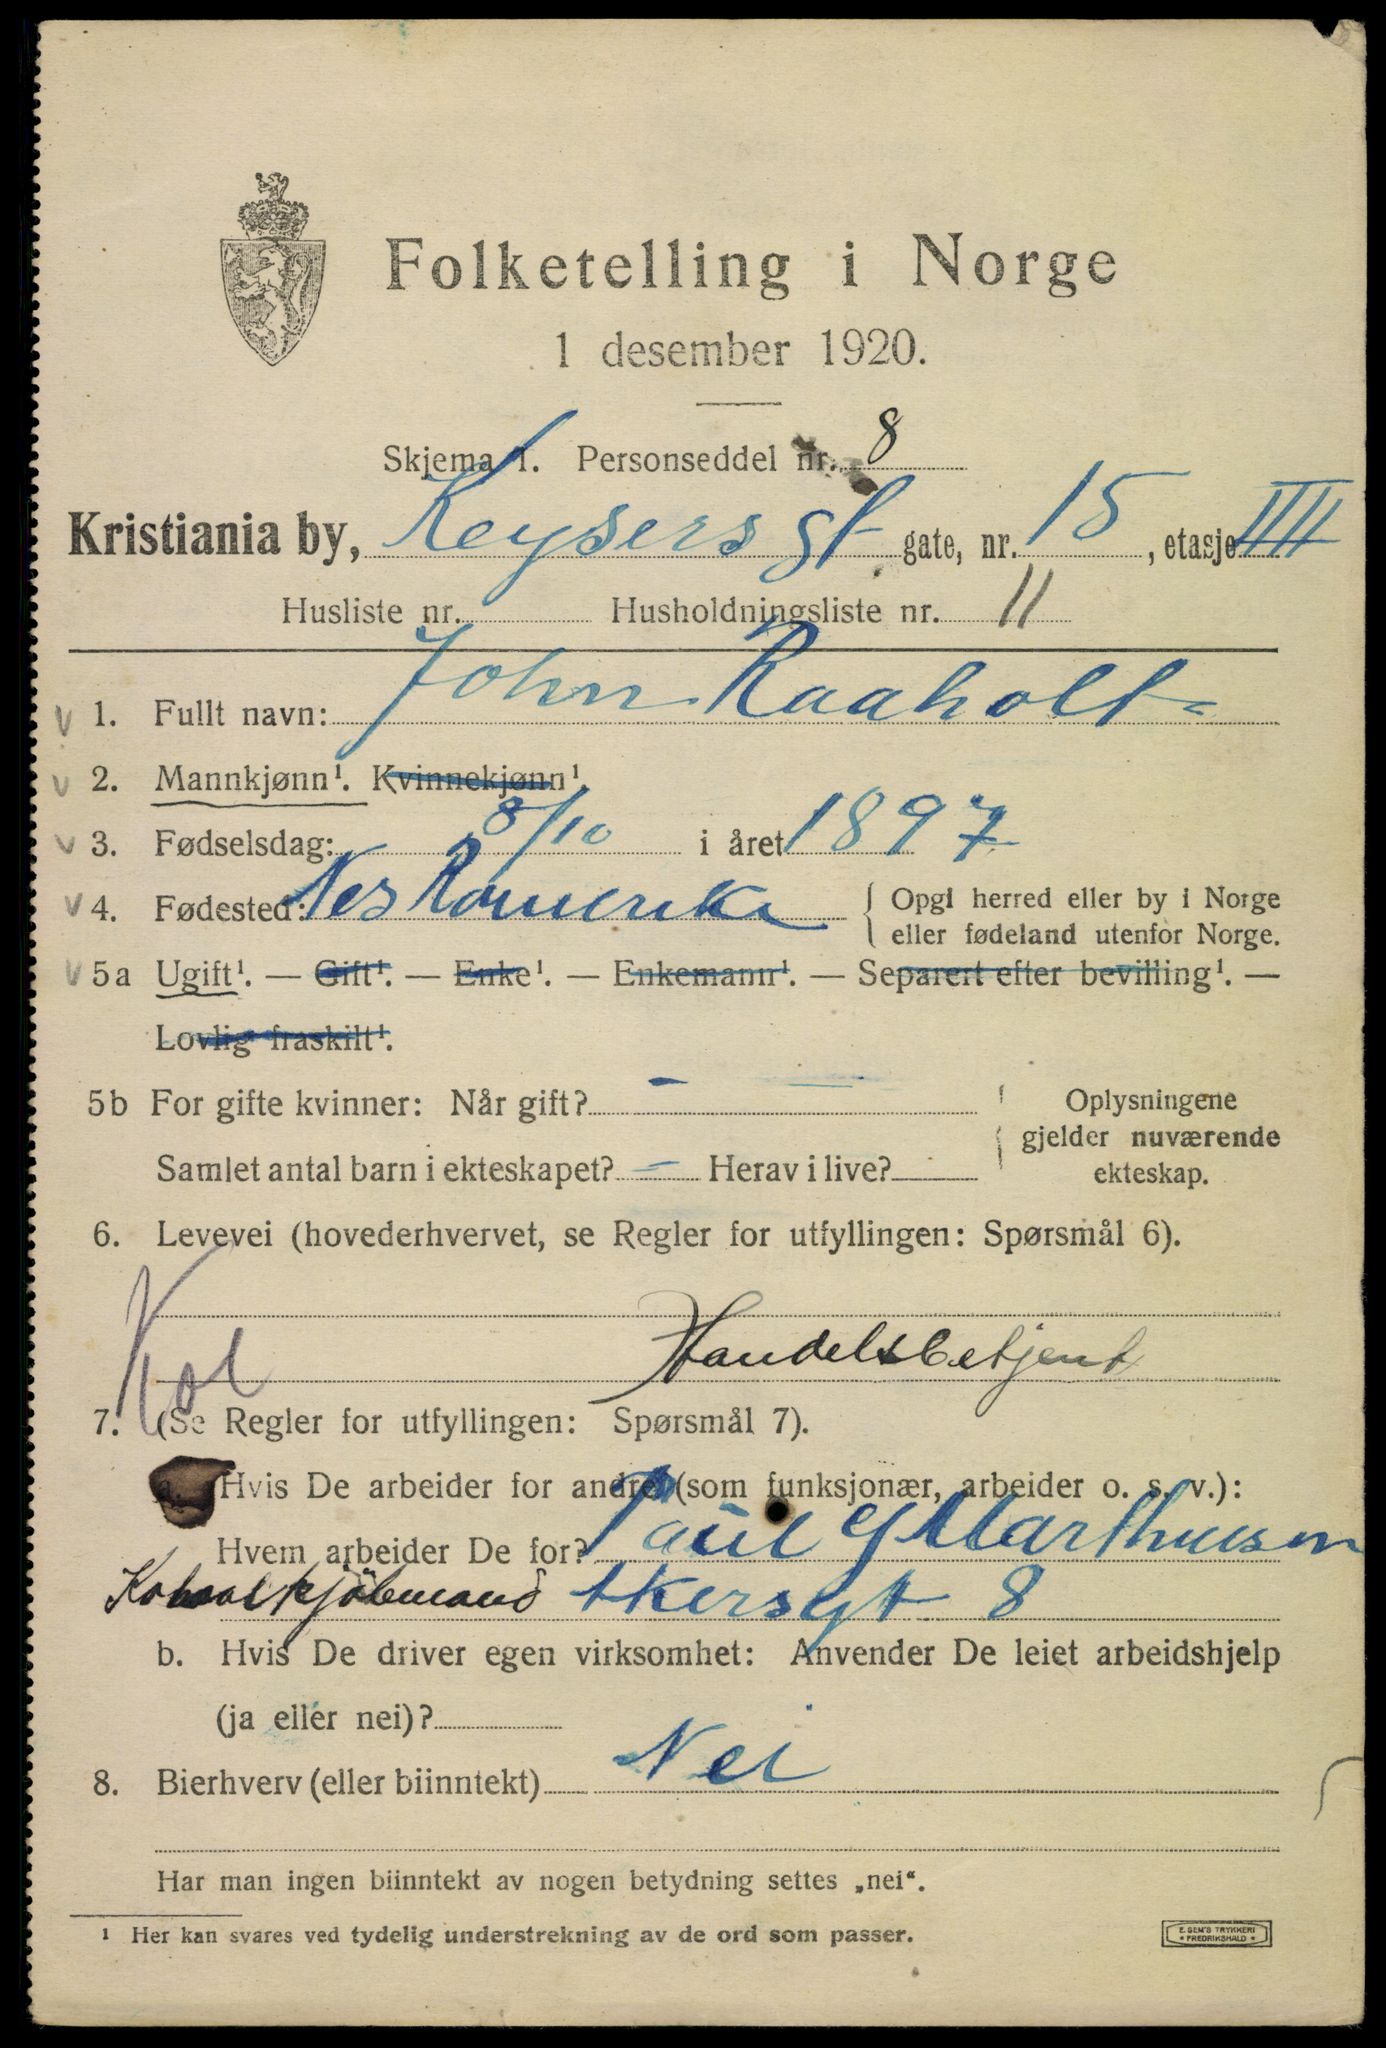 Folketelling i Norge
1 desember 1920.
Skjema 1. Personseddel nr. 8
Kristiania by, Keysers gt gate, nr. 15, etasje IIII
Husliste nr. Husholdningsliste nr. 11
1. Fullt navn: John Raaholt
2. Mannkjønn¹. Kvinnekjønn¹.
3. Fødselsdag: 8/10 i året 1897
4. Fødested: Nes Romerike { Opgi herred eller by i Norge
eller fødeland utenfor Norge.
5a Ugift¹. — Gift¹. — Enke¹. — Enkemann¹. — Separert efter bevilling¹. —
Lovlig fraskilt¹.
5b For gifte kvinner: Når gift? – Oplysningene
gjelder nuværende
Samlet antal barn i ekteskapet? – Herav i live? ekteskap.
6. Levevei (hovederhvervet, se Regler for utfyllingen: Spørsmål 6).
Handelsbetjent
Kol
7. (Se Regler for utfyllingen: Spørsmål 7).
a. Hvis De arbeider for andre (som funksjonær, arbeider o. s. v.):
Hvem arbeider De for? Paul Marthinsen
Akersgt 8
b. Hvis De driver egen virksomhet: Anvender De leiet arbeidshjelp
(ja eller nei)?
8. Bierhverv (eller biinntekt) Nei
Har man ingen biinntekt av nogen betydning settes „nei“.
¹ Her kan svares ved tydelig understrekning av de ord som passer.
E. SEM'S TRYKKERI
• FREDRIKSHALD •